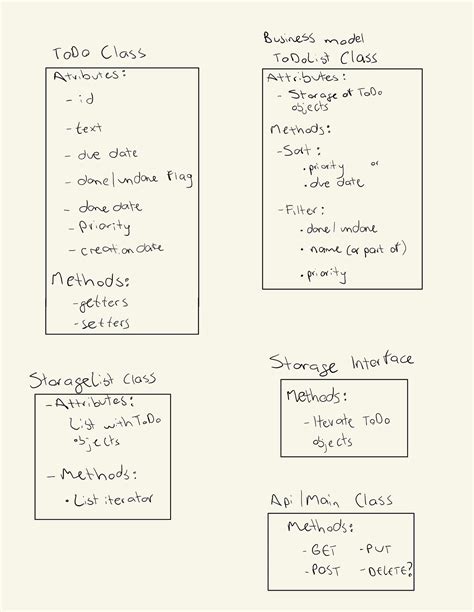 ToDo Class
Atributes:
- id
- text
- due date
- done/undone flag
- done date
- Priority
- creation date
Methods:
- getters
- setters
Business model
ToDoList Class
Attributes:
- Storage of ToDo
objects
Methods:
- Sort:
• priority or
• due date
- Filter:
• done/undone
• name (or part of)
• priority
StorageList Class
- Attributes:
List with ToDo
objects
- Methods:
• List iterator
Storage Interface
Methods:
- Iterate ToDo
objects
Api/Main Class
Methods:
- GET - PUT
- POST - DELETE?